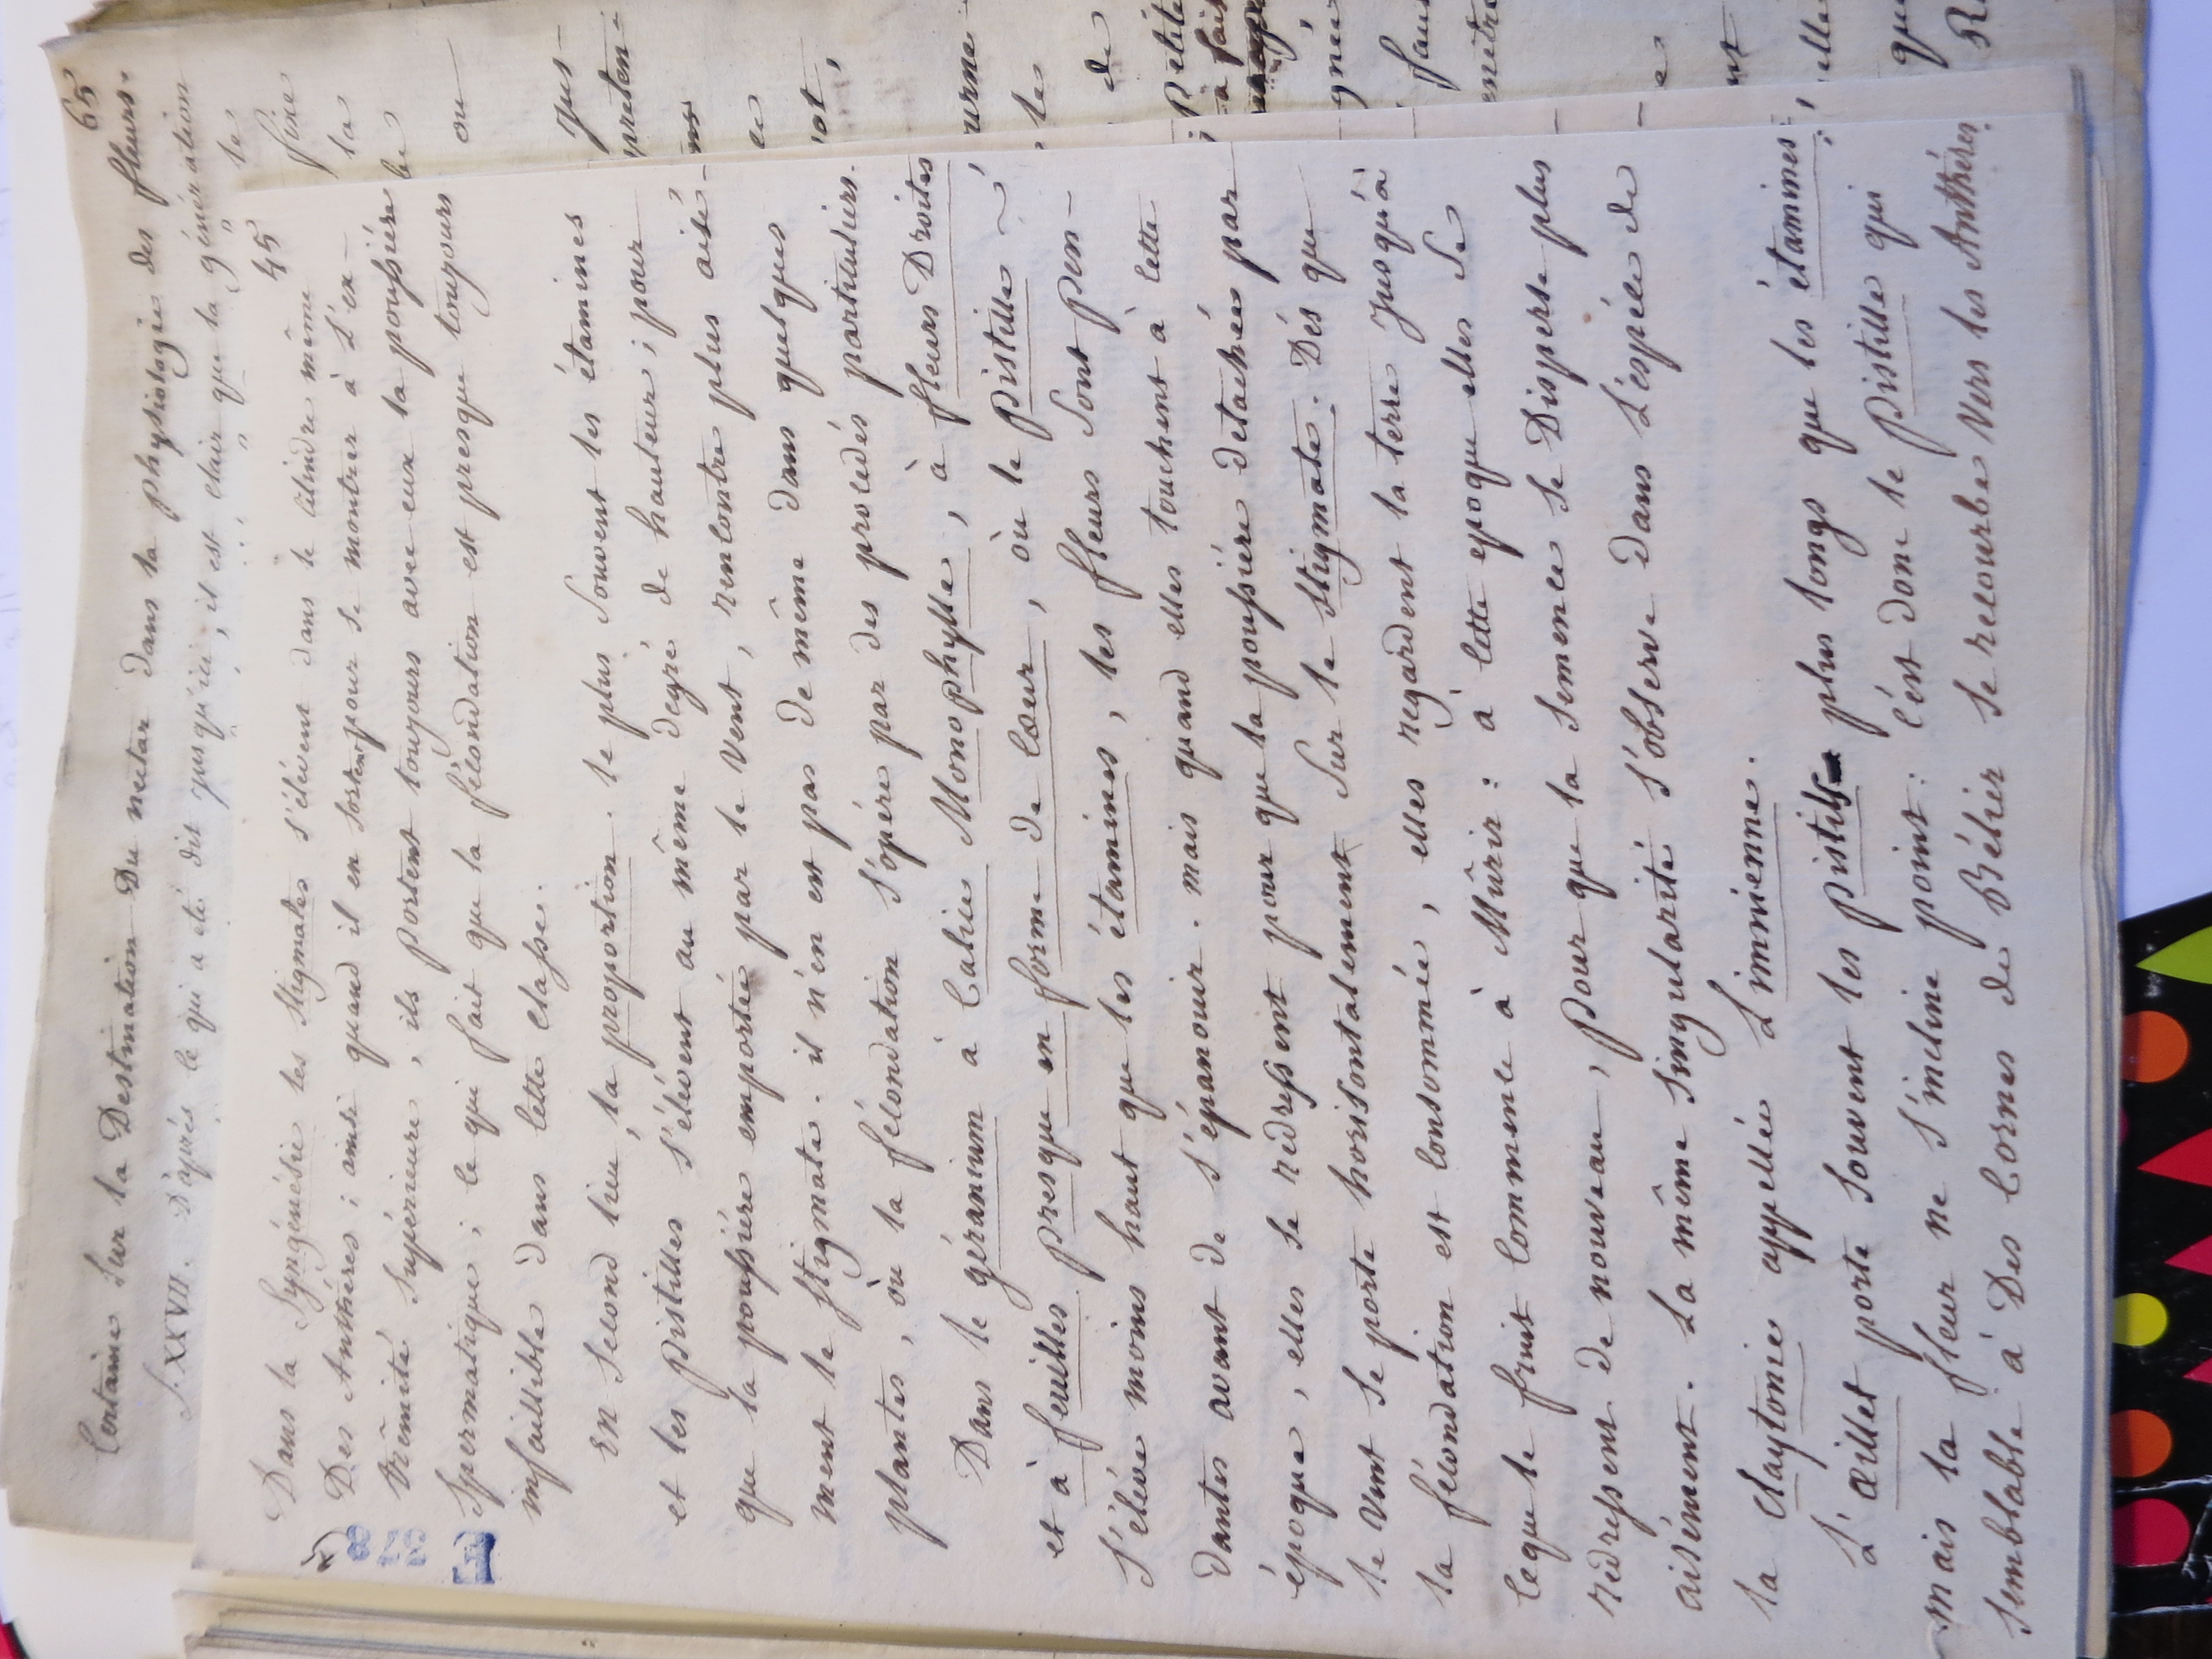 65
Certaine Sur la Destination Du nectar dans la physiologie des fleurs.
§. XXVII. D'après ce qui a été dit jusqu'ici, il est clair que la génération
les
fixe
la
ou
jus-
preten-
ce
urme
les
de
Petite
à fait
faut
gnée
e
nt
elle
que
45
Dans la Syngénésie les Stigmates s'élévent dans le Cilindre même
Des Anthères ; ainsi quand il en sortent pour se montrer à l'ex-
trêmité Supérieure, ils portent toujours avec eux la poussière
Spermatique ; ce qui fait que la fécondation est presque toujours
infaillible dans cette Classe.
En Second lieu, la proportion. le plus Souvent les étamines
et les Pistilles s'élévent au même degré de hauteur ; pour
que la poussière emportée par le Vent, rencontre plus aisé-
ment le Stigmate. il n'en est pas de même dans quelques
plantes, où la fécondation s'opére par des procédés particuliers.
Dans le géranium à Calice Monophylle, à fleurs Droites
et à feuilles presqu'en forme de Cœur, où le Pistille
s'éléve moins haut que les étamines, les fleurs Sont pen-
dantes avant de s'épanouir. mais quand elles touchent à cette
époque, elles se redressent pour que la poussière detachée par
le vent se porte horisontalement Sur le Stigmate. Dés que
la fécondation est Consommée, elles regardent la terre jusqu'à
ceque le fruit Commence à Mûrir : à cette epoque elles Se
redressent de nouveau, pour que la Semence Se Disperse plus
aisément. La même Singularité s'observe dans L'espéce de
la Claytonie appellée Limnienne.
L'œillet porte Souvent les Pistils plus longs que les étamines ;
mais la fleur ne s'incline point : c'est donc le Pistille qui
Semblable à Des Cornes de Bélier Se recourbe Vers les Anthéres.